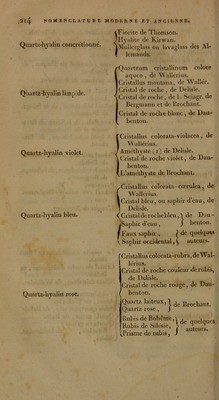 214 NOMENCLATURE MODERNE ET ANCIENNE.
Quartz-hyalin concrétionné.
Fiorite de Thomson.
Hyalite de Kirwan.
Mullerglass ou lavaglass des Allemands.
Quartz-hyalin limpide.
Quartzum cristallinum colore
aqueo, de Wallerius.
Cristallus montana, de Wallér.
Cristal de roche, de Delisle.
Cristal de roche, de l. Sciagr. de
Bergmann et de Brochant.
Cristal de roche blanc, de Daubenton.
Quartz-hyalin violet.
Cristallus colorata-violacea, de
Wallérius.
Améthyste (1) de Delisle.
Cristal de roche violet, de Daubenton.
L'améthyste de Brochant.
Quartz-hyalin bleu.
Cristallus colorata-cerulea, de
Wallerius.
Cristal bleu, ou saphir d'eau, de
Delisle.
Cristal de roche bleu, } de Daubenton.
Saphir d'eau,
Faux saphir, } de quelques
Saphir occidental, } auteurs.
Quartz-hyalin rose.
Cristallus colorata-rubra, de Wallerius.
Cristal de roche couleur de rubis,
de Delisle.
Cristal de roche rouge, de Daubenton.
Quartz laiteux, } de Brochant.
Quartz rose,
Rubis de Bohême, } de quelques
Rubis de Silésie, } auteurs.
Prisme de rubis,